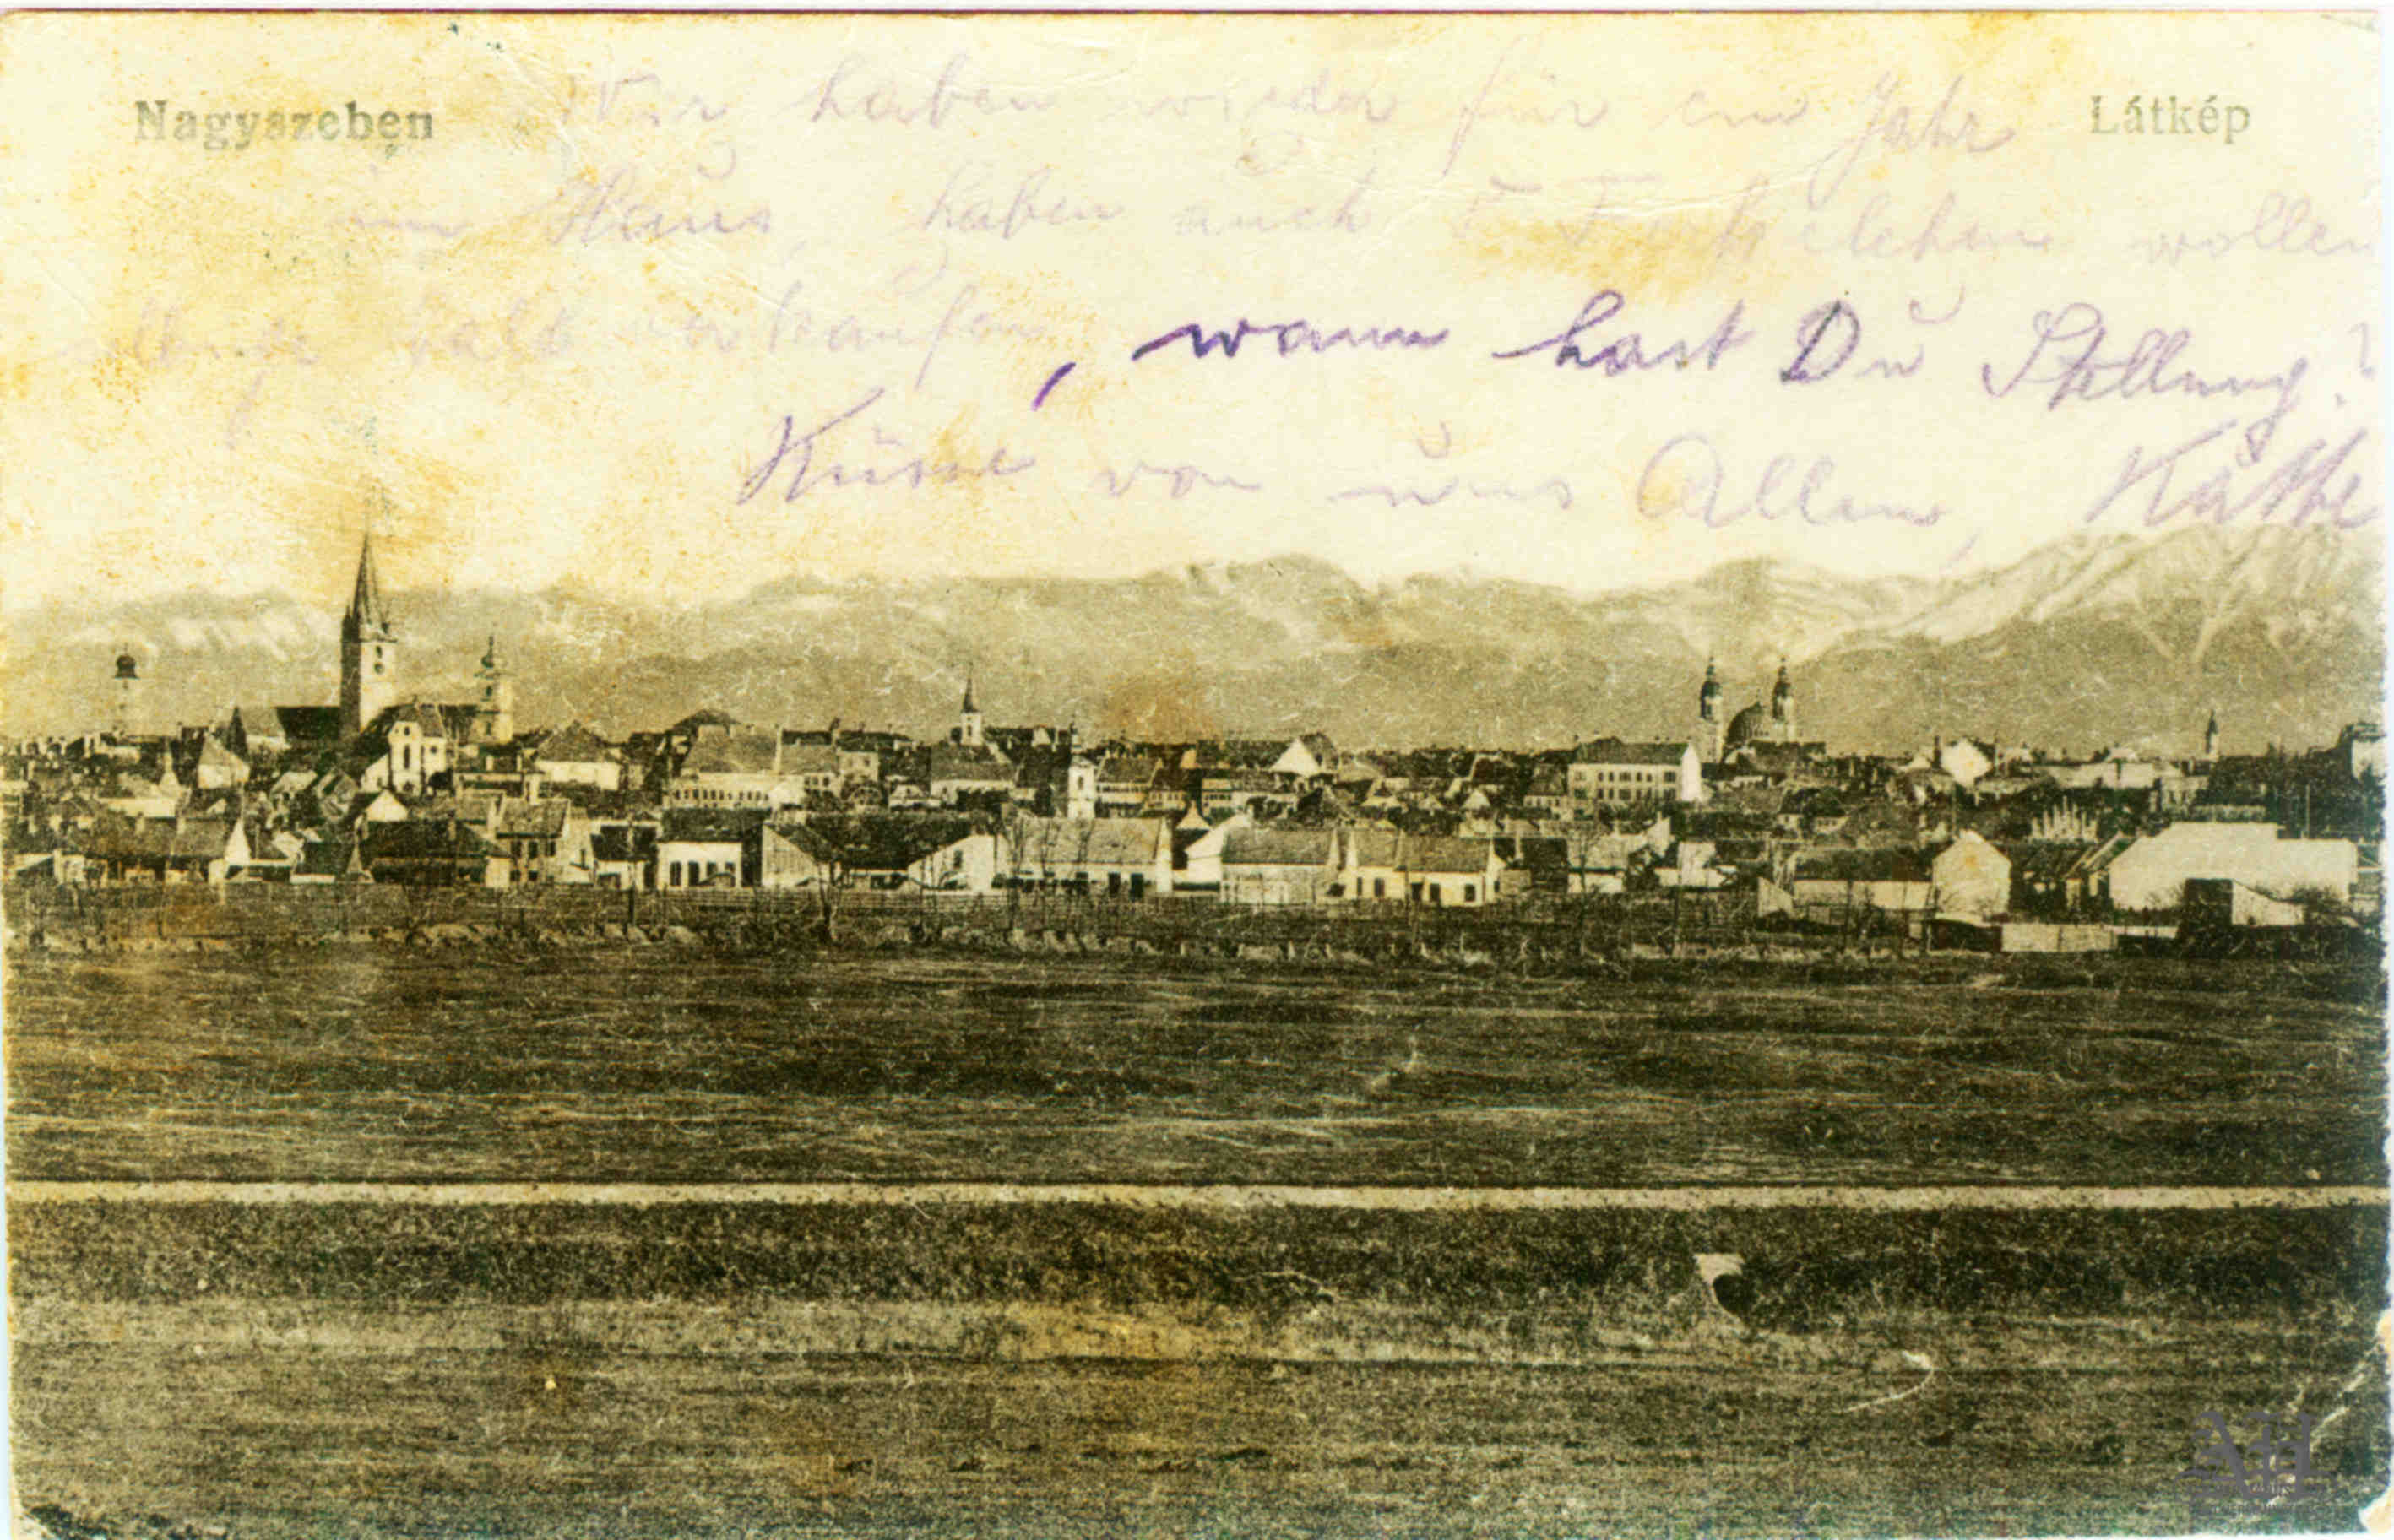 Nagyszeben
Látkép
Wir haben wieder für ein Jahr
im Haus, haben auch wollen
bald verkaufen, wann hast Du Stellung?
Küsse von uns Allen, Käthe